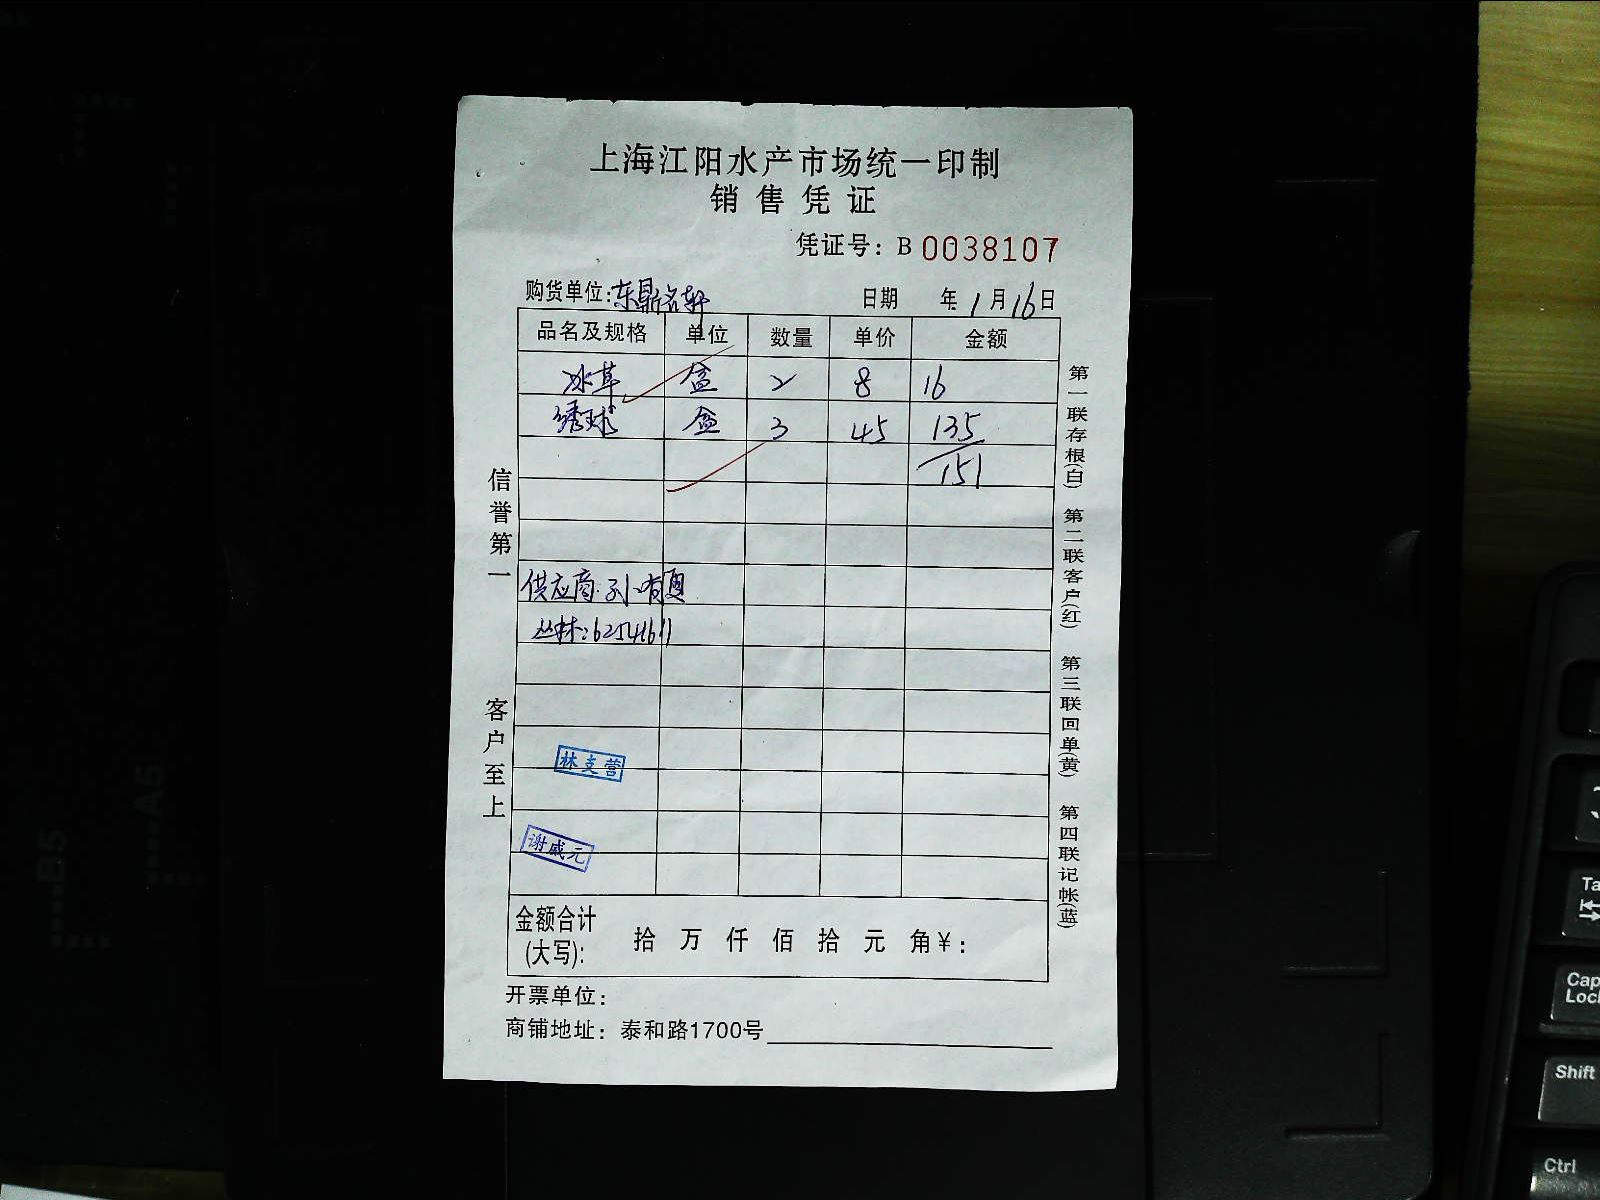 上海江阳水产市场统一印制
销售凭证
凭证号：B 0038107
购货单位:东鼎名轩
日期 年 1 月 16 日
品名及规格 单位 数量 单价 金额
冰草 盒 2 8 16
绣球 盒 3 45 135
151
供应商:
丛林:62541611
林支营
谢威元
金额合计(大写): 拾 万 仟 佰 拾 元 角 ¥:
开票单位：
商铺地址：泰和路1700号
信誉第一
客户至上
第一联存根(白)
第二联客户(红)
第三联回单(黄)
第四联记帐(蓝)
B5
A5
Cap
Loc
Shift
Ctrl
Ta